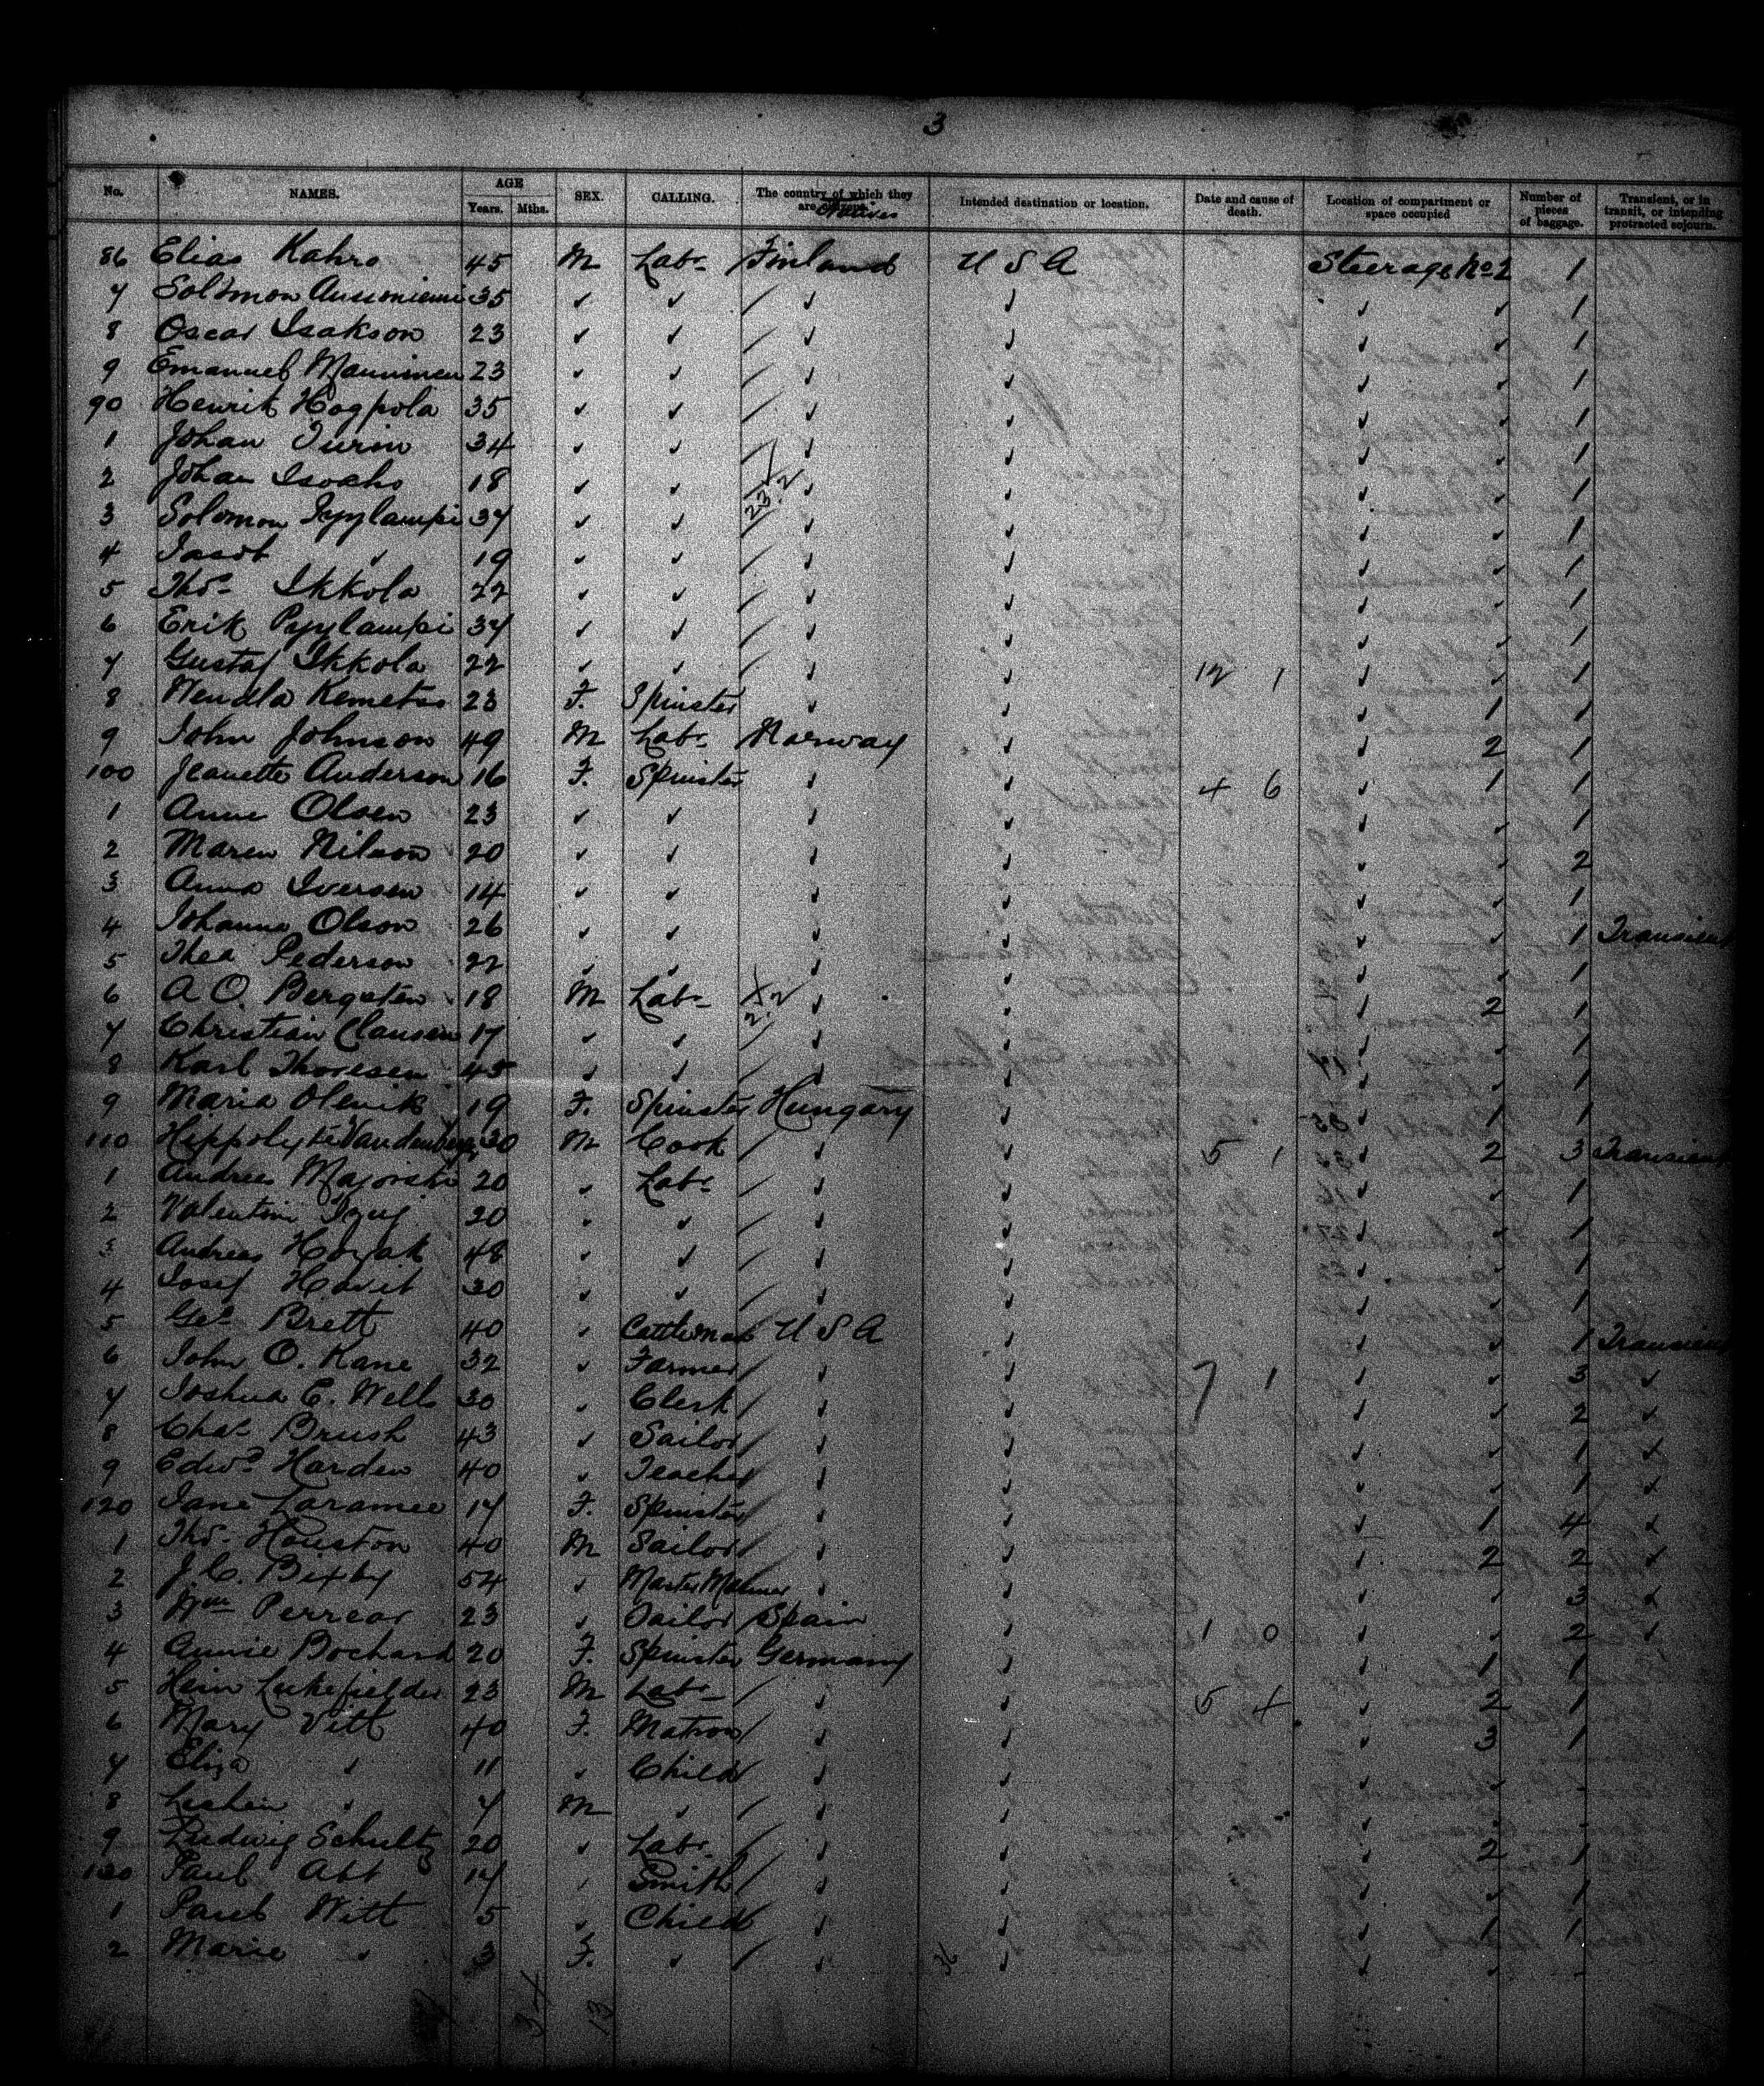 3
No. NAMES. AGE Years. Mths. SEX. CALLING. The country of which they are citizens. Natives Intended destination or location. Date and cause of death. Location of compartment or space occupied Number of pieces of baggage. Transient, or in transit, or intending protracted sojourn.
86 Elias Kahro 45 M Labr Finland U S A Steerage No 2 1
7 Solomon 35 ✓ ✓ ✓ ✓ ✓ ✓ 1
8 Oscar Isakson 23 ✓ ✓ ✓ ✓ ✓ ✓ 1
9 Emanuel Manninen 23 ✓ ✓ ✓ ✓ ✓ ✓ 1
90 Henrik Hogpola 35 ✓ ✓ ✓ ✓ ✓ ✓ 1
1 Johan 34 ✓ ✓ ✓ ✓ ✓ ✓ 1
2 Johan Isoaho 18 ✓ ✓ ✓ ✓ ✓ ✓ 1
3 Solomon 37 ✓ ✓ ✓ ✓ ✓ ✓ 1
4 ✓ 19 ✓ ✓ ✓ ✓ ✓ ✓ 1
5 Thos Ikkola 22 ✓ ✓ ✓ ✓ ✓ ✓ 1
6 Erik Pyylampi 37 ✓ ✓ ✓ ✓ ✓ ✓ 1
7 Gustaf Ikkola 22 ✓ ✓ ✓ ✓ 12 1 ✓ ✓ 1
8 Wendla Kemetso 23 F. Spinster ✓ ✓ ✓ 1 1
9 John Johnson 49 M Labr Norway ✓ ✓ 2 1
100 Jeanette Anderson 16 F. Spinster ✓ ✓ 4 6 ✓ 1 1
1 Anne Olsen 23 ✓ ✓ ✓ ✓ ✓ ✓ 1
2 Maren Nilson 20 ✓ ✓ ✓ ✓ ✓ ✓ 2
3 Anna Iversen 14 ✓ ✓ ✓ ✓ ✓ ✓ 1
4 Johanna Olson 26 ✓ ✓ ✓ ✓ ✓ ✓ 1 Transient
5 Thea Pederson 22 ✓ ✓ ✓ ✓ ✓ ✓ 1
6 A O. Bergsten 18 M Labr ✓ ✓ ✓ 2 1
7 Christian Clausen 17 ✓ ✓ ✓ ✓ ✓ ✓ 1
8 Karl Thoresen 45 ✓ ✓ ✓ ✓ ✓ ✓ 1
9 Maria Olenik 19 F. Spinster Hungary ✓ ✓ 1 1
110 Hippolyte Vandenberg 30 M Cook ✓ ✓ 5 1 ✓ 2 3 Transient
1 Andreas 20 ✓ Labr ✓ ✓ ✓ ✓ 1
2 20 ✓ ✓ ✓ ✓ ✓ ✓ 1
3 Andreas 48 ✓ ✓ ✓ ✓ ✓ ✓ 1
4 Josef 30 ✓ ✓ ✓ ✓ ✓ ✓ 1
5 Geo Brett 40 ✓ Cattleman U S A ✓ ✓ ✓ 1 Transient
6 John O. Kane 32 ✓ Farmer ✓ ✓ 7 1 ✓ ✓ 3 ✓
7 Joshua E. Wells 30 ✓ Clerk ✓ ✓ ✓ ✓ 2 ✓
8 Chas Brush 43 ✓ Sailor ✓ ✓ ✓ ✓ 1 ✓
9 Edwd Harden 40 ✓ Teacher ✓ ✓ ✓ ✓ 1 ✓
120 Jane Laramee 17 F. Spinster ✓ ✓ ✓ 1 4 ✓
1 Thos Houston 40 M Sailor ✓ ✓ ✓ 2 2 ✓
2 J. C. Bixby 54 ✓ Master Mariner ✓ ✓ ✓ ✓ 3 ✓
3 Wm Perrear 23 ✓ Sailor Spain ✓ 1 0 ✓ ✓ 2 ✓
4 Annie Bochard 20 F. Spinster Germany ✓ ✓ 1 1
5 Hein Lukefielder 23 M Labr ✓ ✓ 5 4 ✓ 2 1
6 Mary Vitt 40 F. Matron ✓ ✓ ✓ 3 1
7 Eliza ✓ 11 ✓ Child ✓ ✓ ✓ ✓ -
8 ✓ 7 M ✓ ✓ ✓ ✓ ✓ -
9 Ludwig Schultz 20 ✓ Labr ✓ ✓ ✓ 2 1
130 Paul Abt 17 ✓ Smith ✓ ✓ ✓ ✓ 1
1 Paul Witt 5 ✓ Child ✓ ✓ ✓ 1 1
2 Marie ✓ 3 F. ✓ ✓ ✓ ✓ ✓ -